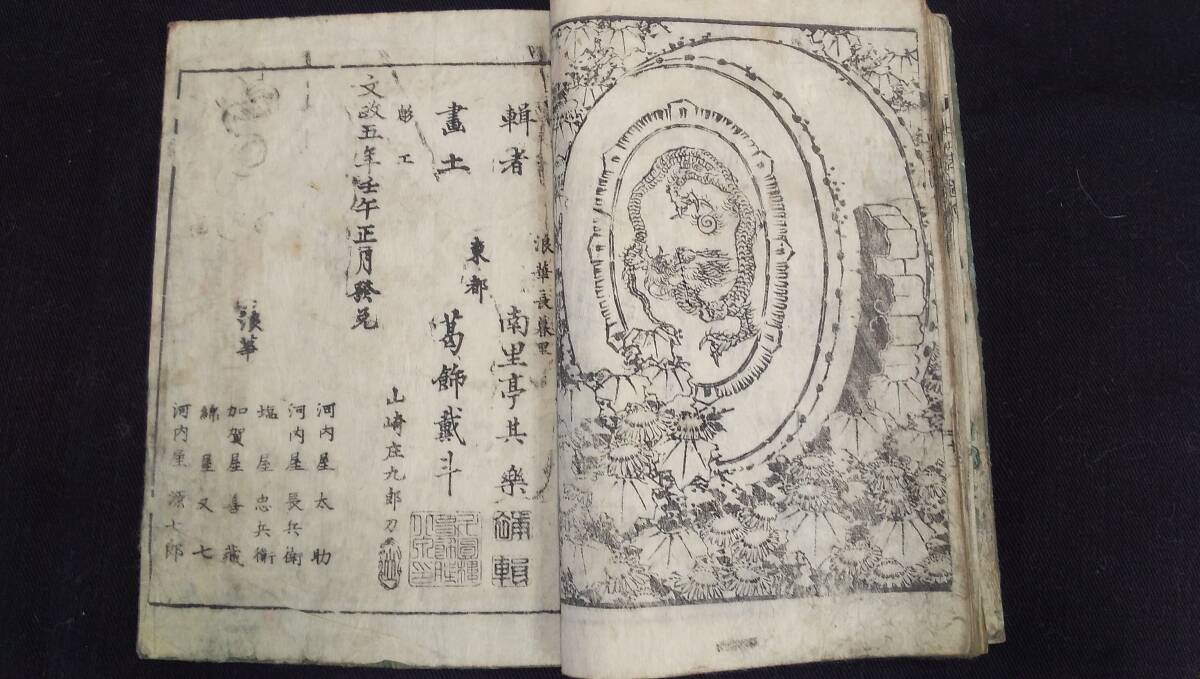 輯者
浪華長堀里
南里亭其樂
補輯
畫工
東都
葛飾戴斗
彫工
山崎庄九郎刀
文政五年壬午正月發兌
浪華
河内屋太助
河内屋長兵衛
塩屋忠兵衛
加賀屋善蔵
綿屋又七
河内屋源七郎